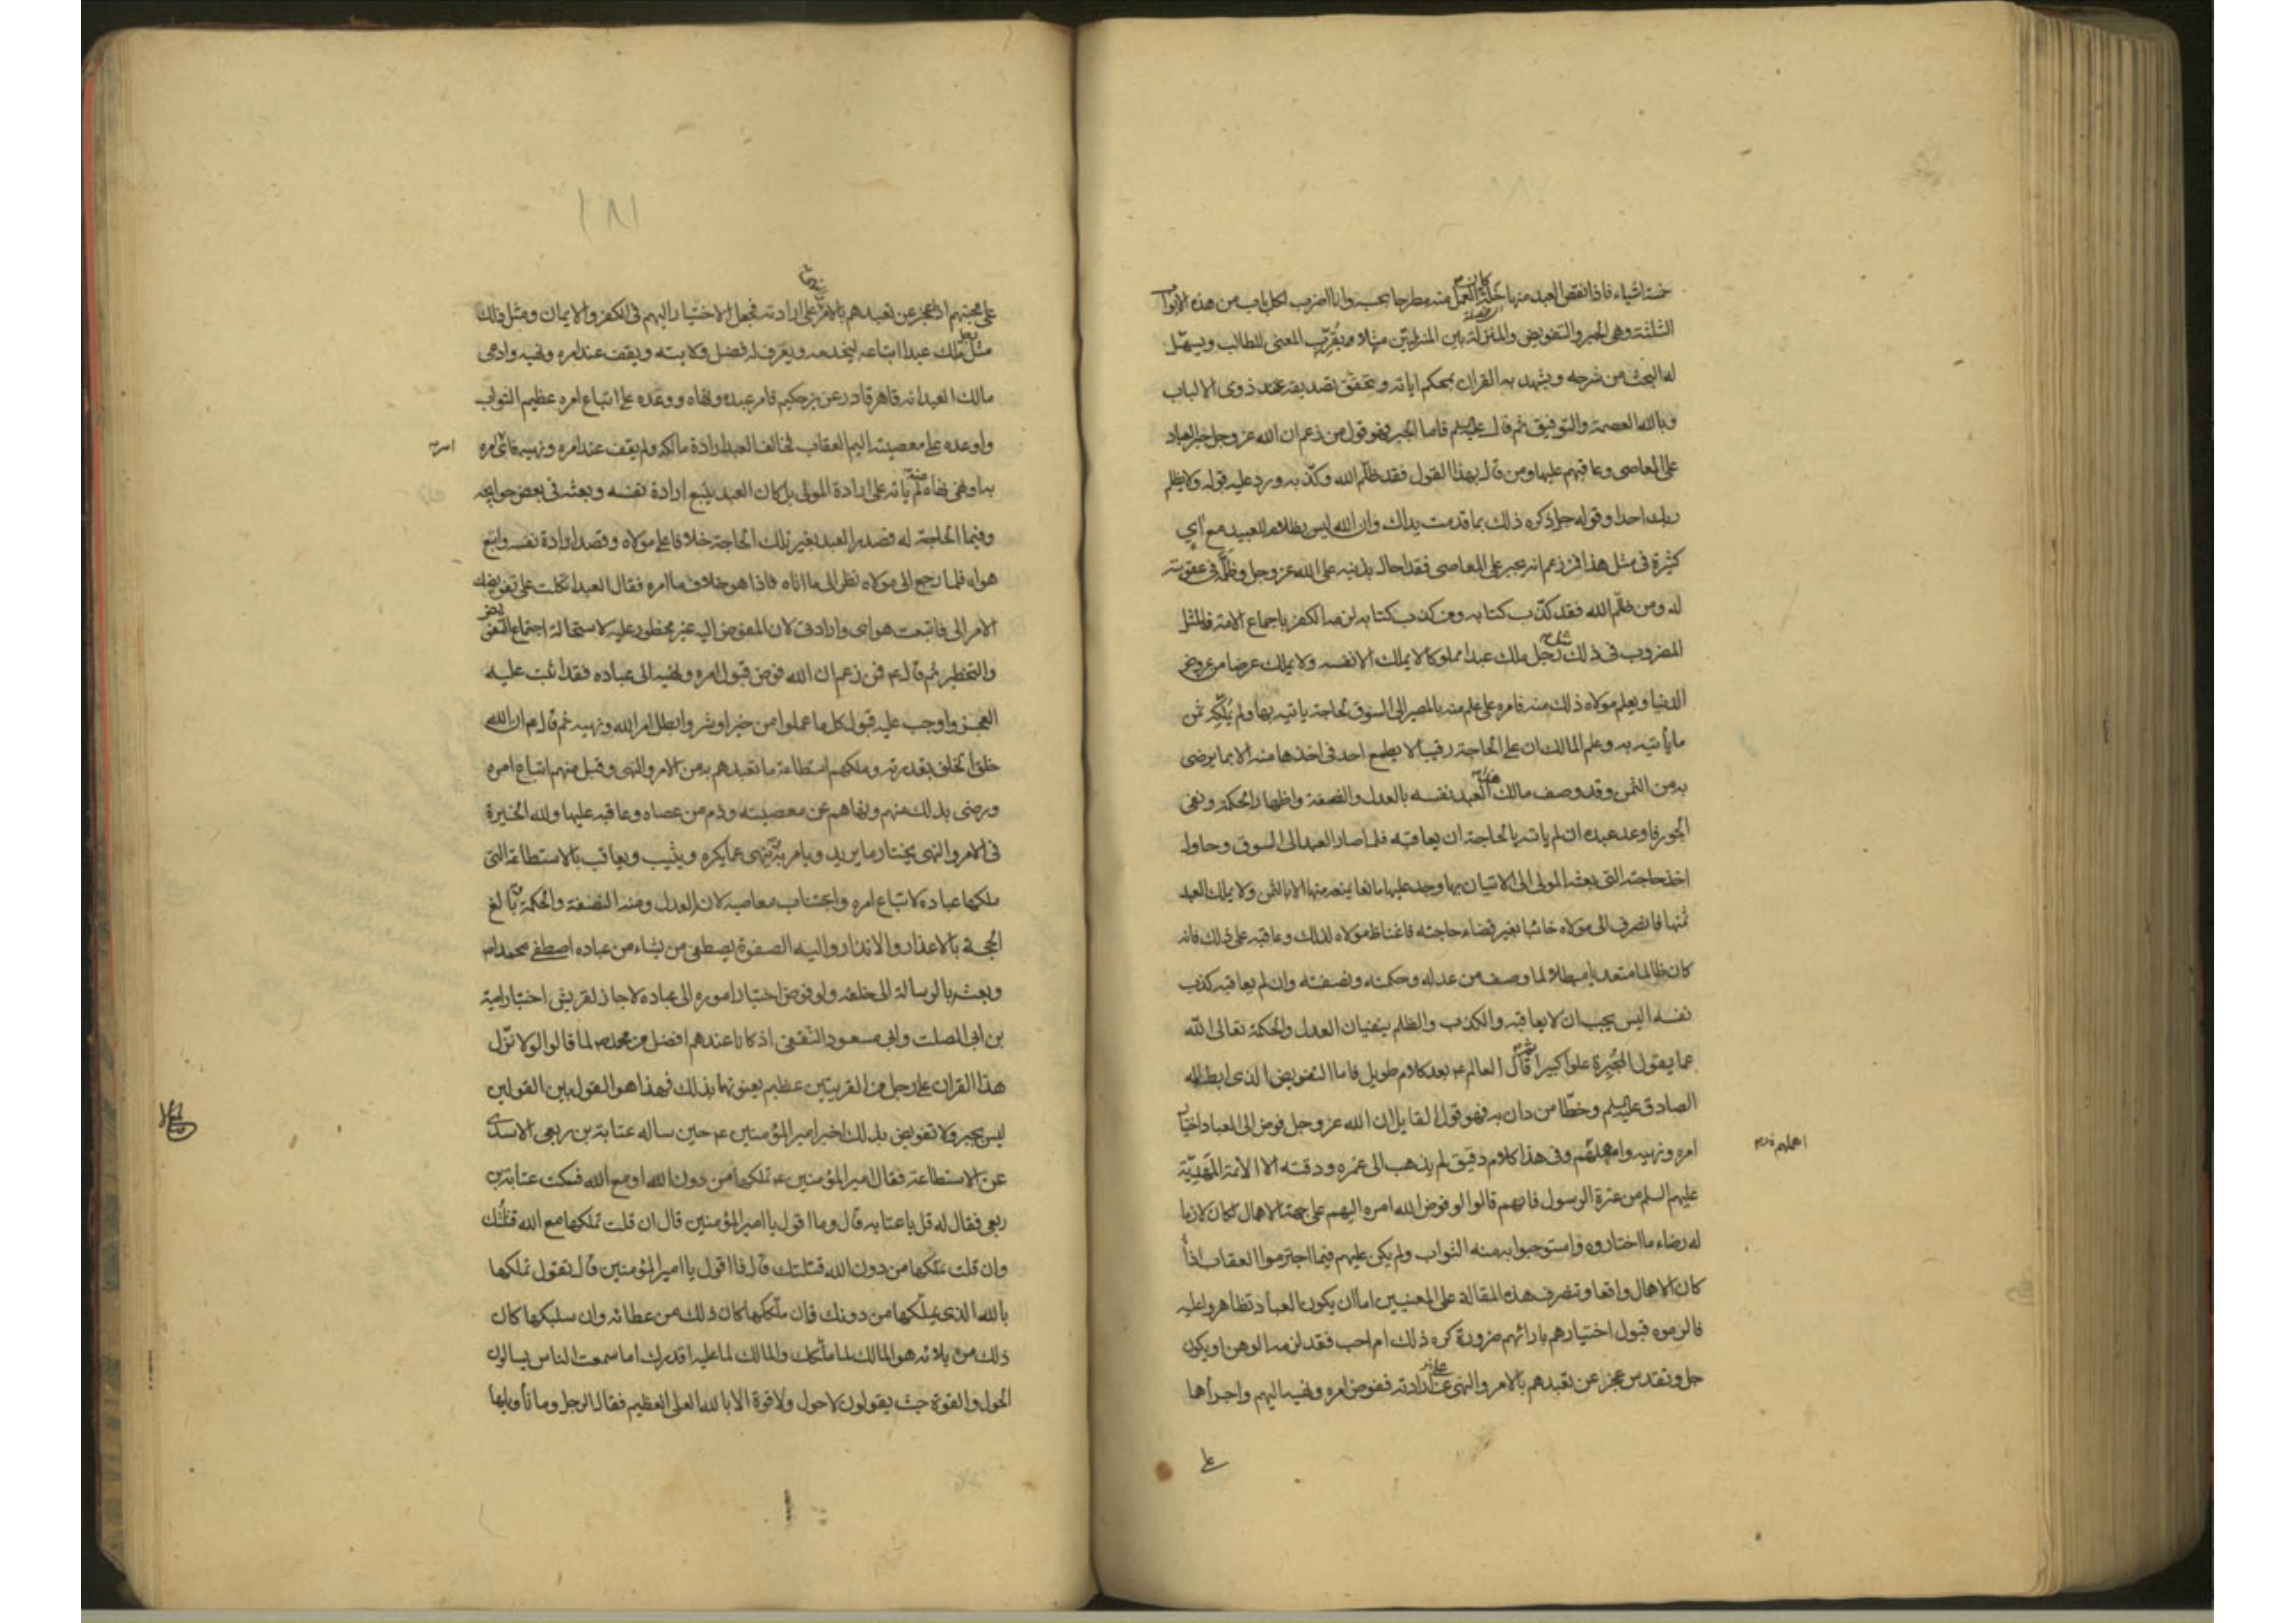 خمسة اشياء فاذا نقص العبد منها خلة كان العمل منه مطرحا بحسبه وانا اضرب لكل باب من هذه الابواب
الثلثة وهى الجبر والتفويض والمنزلة بين المنزلتين مثلا يقرب المعنى للطالب ويسهل
له البحث من شرحه ويشهد به القران بمحكم اياته وتحقق تصديقه عند ذوى الالباب
وبالله العصمة والتوفيق ثم قال عليه السلم فاما الجبر فهو قول من زعم ان الله عز وجل جبر العباد
على المعاصى وعاقبهم عليها ومن قال بهذا القول فقد ظلم الله وكذبه ورد عليه قوله ولا يظلم
ربك احدا وقوله جل ذكره ذلك بما قدمت يداك وان الله ليس بظلام للعبيد مع اي
كثيرة فى مثل هذا فمن زعم انه مجبر على المعاصى فقد احال بذنبه على الله عز وجل وظلمه فى عقوبته
له ومن ظلم الله فقد كذب كتابه ومن كذب كتابه لزمه الكفر باجماع الامة فالمثل
المضروب فى ذلك مثل رجل ملك عبدا مملوكا لا يملك الا نفسه ولا يملك عرضا من عروض
الدنيا ويعلم مولاه ذلك منه فامره على علم منه بالمصير الى السوق لحاجة ياتيه بها ولم يملكه ثمن
ما يأتيه به وعلم المالك ان على الحاجة رقيبا لا يطمع احد فى اخذها منه الا بما يرضى
به من الثمن وقد وصف مالك هذا العبد نفسه بالعدل والنصفة واظهار الحكمة ونفى
الجور فاوعد عبده ان لم ياته بالحاجة ان يعاقبه فلما صار العبد الى السوق وحاول
اخذ حاجته التى بعثه المولى الى الاتيان بها وجد عليها مانعا يمنعه منها الا بالثمن ولا يملك العبد
ثمنها فانصرف الى مولاه خائبا بغير قضاء حاجته فاغتاظ مولاه لذلك وعاقبه على ذلك فانه
كان ظالما متعديا مبطلا لما وصف من عدله وحكمته ونصفته وان لم يعاقبه كذب
نفسه اليس يجب ان لا يعاقبه والكذب والظلم ينفيان العدل والحكمة تعالى الله
عما يقول المجبرة علوا كبيرا ثم قال العالم ع بعد كلام طويل فاما التفويض الذى ابطله
الصادق عليه السلم وخطأ من دان به فهو قول القايل ان الله عز وجل فوض الى العباد اختيار
امره ونهيه واهملهم وفى هذا كلام دقيق لم يذهب الى غوره ودقته الا الائمة المهدية
اهملهم
عليهم السلم من عترة الرسول فانهم قالوا لو فوض الله امره اليهم على جهة الاهمال لكان لازما
له رضاء ما اختاروه واستوجبوا به منه الثواب ولم يكن عليهم فيما اجترموا العقاب اذا
كان الاهمال واقعا وتنصرف هذه المقالة على المعنيين اما ان يكون العباد تظاهروا عليه
فالزموه قبول اختيارهم بارائهم ضرورة كره ذلك ام احب فقد لزمه الوهن او يكون
جل وتقدس عجز عن تعبدهم بالامر والنهى على ارادته ففوض امره ونهيه اليهم واجراها
على
على محبتهم اذ عجز عن تعبدهم بالامر والنهى على ارادته فجعل الاختيار اليهم فى الكفر والايمان ومثل ذلك
مثل رجل ملك عبدا ابتاعه ليخدمه ويعرف له فضل ولايته ويقف عند امره ونهيه وادعى
مالك العبد انه قاهر قادر عزيز حكيم فامر عبده ونهاه ووعده على اتباع امره عظيم الثواب
واوعده على معصيته اليم العقاب فخالف العبد ارادة مالكه ولم يقف عند امره ونهيه فاى امره
امره
به او نهى نهاه عنه لم ياته على ارادة المولى بل كان العبد يتبع ارادة نفسه وبعثه فى بعض حوايجه
وفيما الحاجة له فصدر العبد بغير تلك الحاجة خلافا على مولاه وقصد ارادة نفسه واتبع
هواه فلما رجع الى مولاه نظر الى ما اتاه فاذا هو خلاف ما امره فقال العبد اتكلت على تفويضك
الامر الى فاتبعت هواى وارادتى لان المفوض اليه غير محظور عليه لاستحالة اجتماع التفويض
والتحظير ثم قال ع فمن زعم ان الله فوض قبول امره ونهيه الى عباده فقد اثبت عليه
العجز واوجب عليه قبول كل ما عملوا من خير او شر وابطل امر الله ونهيه ثم قال ع ان الله
خلق الخلق بقدرته وملكهم استطاعة ما تعبدهم به من الامر والنهى وقبل منهم اتباع امره
ورضى بذلك منهم ونهاهم عن معصيته وذم من عصاه وعاقبه عليها ولله الخيرة
فى الامر والنهى يختار ما يريد ويامر به وينهى عما يكره ويثيب ويعاقب بالاستطاعة التى
ملكها عباده لاتباع امره واجتناب معاصيه لانه العدل ومنه النصفة والحكمة بالغ
الحجة بالاعذار والانذار واليه الصفوة يصطفى من يشاء من عباده اصطفى محمدا ص
وبعثه بالرسالة الى خلقه ولو فوض اختيار اموره الى عباده لاجاز لقريش اختيار امية
بن ابى الصلت وابى مسعود الثقفى اذ كانا عندهم افضل من محمد ص لما قالوا لولا نزل
هذا القران على رجل من القريتين عظيم يعنونهما بذلك فهذا هو القول بين القولين
ليس بجبر ولا تفويض بذلك اخبر امير المؤمنين ع حين ساله عتابة بن ربعى الاسدى
عن الاستطاعة فقال امير المؤمنين ع تملكها من دون الله او مع الله فسكت عتابة بن
ربعى فقال له قل يا عتابه قال وما اقول يا امير المؤمنين قال ان قلت تملكها مع الله قتلتك
وان قلت تملكها من دون الله قتلتك قال فما اقول يا امير المؤمنين قال تقول تملكها
بالله الذى يملكها من دونك فان ملككها كان ذلك من عطائه وان سلبكها كان
ذلك من بلائه هو المالك لما ملكك والمالك لما عليه اقدرك اما سمعت الناس يسالون
الحول والقوة حيث يقولون لا حول ولا قوة الا بالله العلى العظيم فقال الرجل وما تأويلها